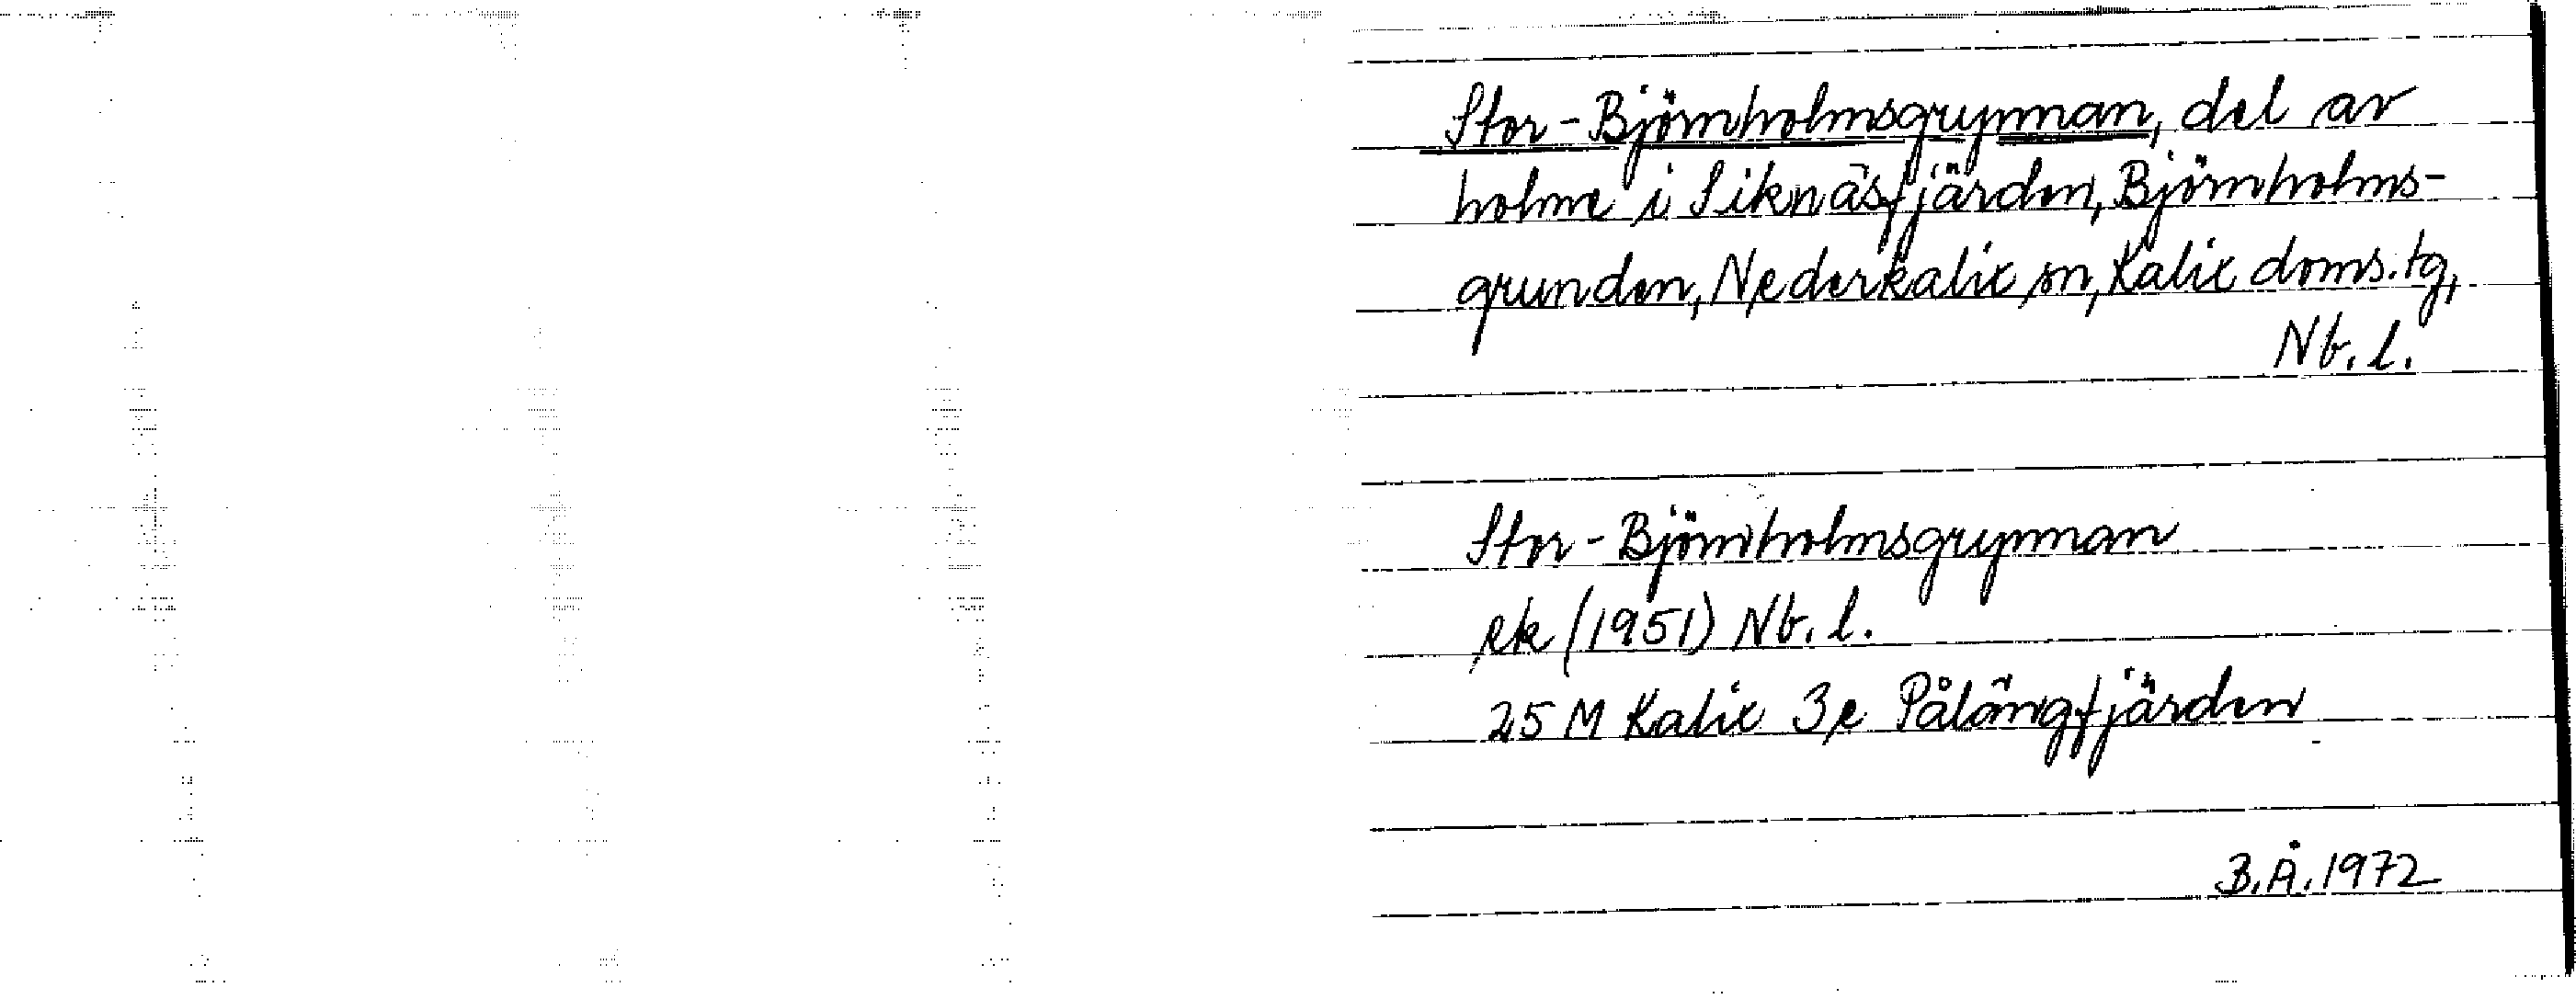 Stor-Björnholmsgrynnan, del av
holme i Siknäsfjärden, Björnholms-
grunden, Nederkalix sn, Kalix doms.tg,
Nb.l.
Stor-Björnholmsgrynnan
ek (1951) Nb.l.
25 M Kalix 3e Pålängfjärden
B.Å.1972